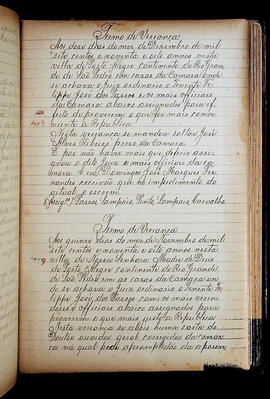 Termo de Vereança
Aos dous dias do mez de Dezembro de mil
sete centos e noventa e oito annos nesta
villa de Porto Alegre continente do Rio Gran
de de São Pedro em casas da Camara onde
se achava o Juiz ordinario o Tenente Fe
lippe José dos Passos e os mais officiaes
da Camara abaixo assignados para ef
feito de proverem o que for mais conve
niente a Republica.
Nesta vereança se mandou soltar José
Alves Ribeiro prezo da Camara.
E por não haver mais que deferir assi
gnou o dito Juiz e mais officiaes da ca
mara. E eu Domingos José Marques Fer
nandes escrivão que no impedimento do
actual o escrevi.
Soares Sampaio Pinto Sampaio Carvalho
Termo de Vereança
Aos quinze dias do mez de Novembro de mil
sete centos e noventa e oito annos nesta
villa de Nossa Senhora Madre de Deus
de Porto Alegre continente do Rio Grande
de São Pedro em as casas da Camara on
de se achava o Juiz ordinario o Tenente Fe
lippe José dos Passos com os mais verea
dores e officiaes abaixo assignados para
proverem o que mais justo a Republica
Nesta vereança se abrio huma carta do
Doutor ouvidor geral corregedor da comar
ca na qual pede